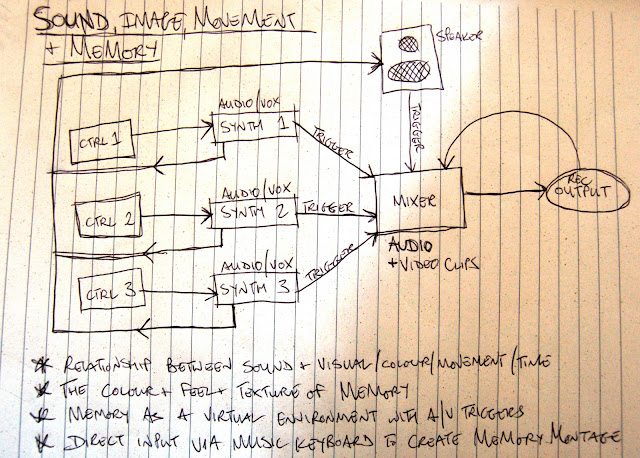 SOUND, IMAGE, MOVEMENT
+ MEMORY
SPEAKER
TRIGGER
AUDIO/VOX
CTRL 1
SYNTH 1
TRIGGER
AUDIO/VOX
CTRL 2
SYNTH 2
TRIGGER
MIXER
REC
OUTPUT
AUDIO
+ VIDEO CLIPS
AUDIO/VOX
CTRL 3
SYNTH 3
TRIGGER
* RELATIONSHIP BETWEEN SOUND + VISUAL/COLOUR/MOVEMENT/TIME
* THE COLOUR + FEEL + TEXTURE OF MEMORY
* MEMORY AS A VIRTUAL ENVIRONMENT WITH A/V TRIGGERS
* DIRECT INPUT VIA MUSIC KEYBOARD TO CREATE MEMORY MONTAGE